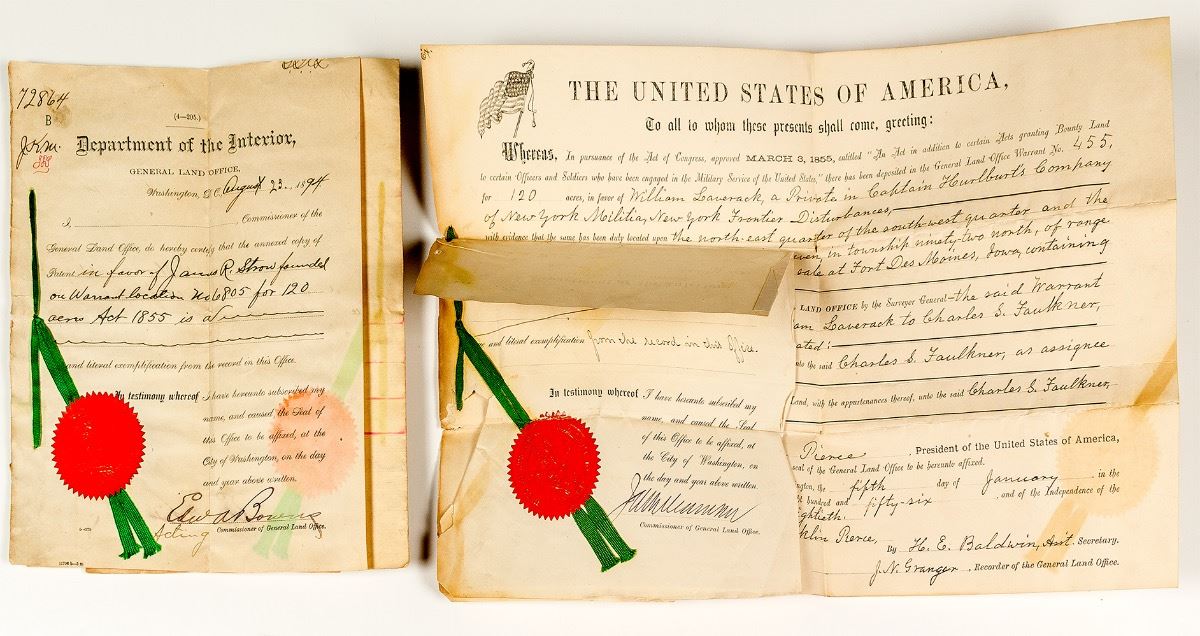 72864
B
J.K.M.
(4—205.)
Department of the Interior,
GENERAL LAND OFFICE,
Washington, D.C., August 23 1894
I,
Commissioner of the
General Land Office, do hereby certify that the annexed copy of
Patent in favor of James R. Strow founded
on Warrant location No 6805 for 120
acres Act 1855 is a
and literal exemplification from the record in this Office.
In testimony whereof I have hereunto subscribed my
name, and caused the Seal of
this Office to be affixed, at the
City of Washington, on the day
and year above written.
Edw A Bowers
Acting Commissioner of General Land Office.
THE UNITED STATES OF AMERICA,
To all to whom these presents shall come, greeting:
Whereas, In pursuance of the Act of Congress, approved MARCH 3, 1855, entitled "An Act in addition to certain Acts granting Bounty Land
to certain Officers and Soldiers who have been engaged in the Military Service of the United States," there has been deposited in the General Land Office Warrant No. 455,
for 120 acres, in favor of William Laverack, a Private in Captain Hurlburt's Company
of New York Militia, New York Frontier Disturbances,
with evidence that the same has been duly located upon the north-east quarter of the south-west quarter and the
even, in township ninety-two north, of range
sale at Fort Des Moines, Iowa, containing
LAND OFFICE by the Surveyor General—the said Warrant
am Laverack to Charles S. Faulkner,
ated:
and literal exemplification from the record in this Office.
unto the said Charles S. Faulkner, as assignee
Land, with the appurtenances thereof, unto the said Charles S. Faulkner,
In testimony whereof I have hereunto subscribed my
name, and caused the Seal
of this Office to be affixed, at
the City of Washington, on
the day and year above written.
Commissioner of General Land Office.
Pierce, President of the United States of America,
seal of the General Land Office to be hereunto affixed.
ngton, the fifth day of January, in the
hundred and fifty-six, and of the Independence of the
ightieth.
nklin Pierce,
By H. E. Baldwin, Asst. Secretary.
J. N. Granger, Recorder of the General Land Office.